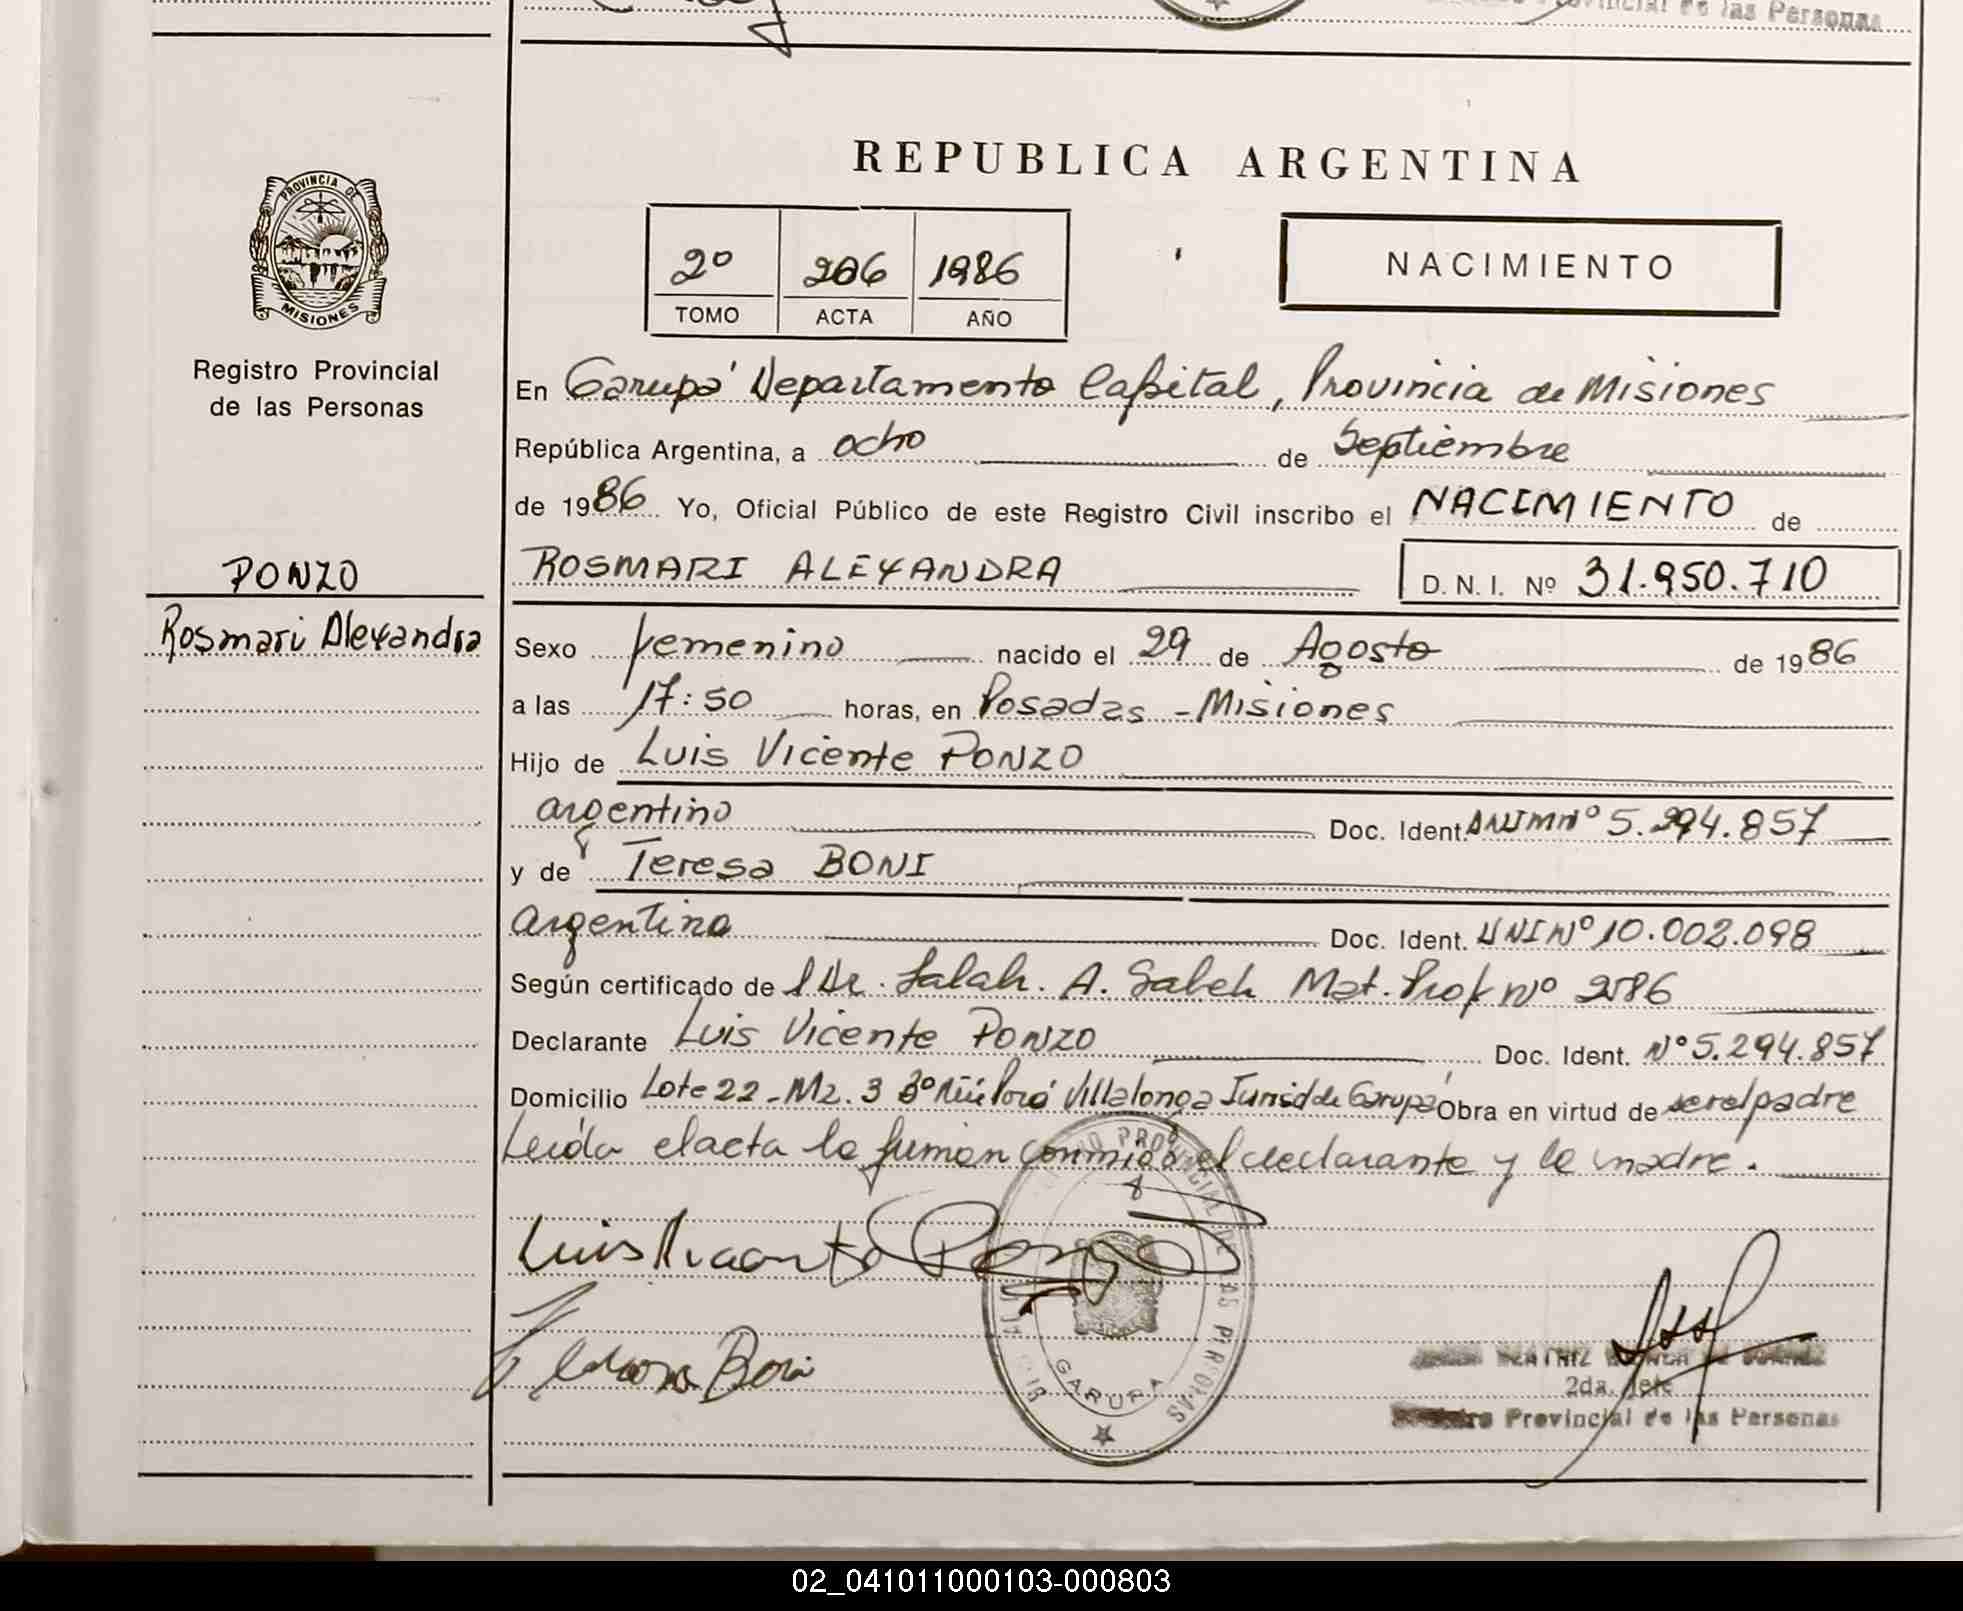 Provincial de las Personas
REPUBLICA ARGENTINA
PROVINCIA DE
MISIONES
Registro Provincial
de las Personas
2º 206 1986
TOMO ACTA AÑO
NACIMIENTO
En Garupá Departamento Capital, Provincia de Misiones
República Argentina, a ocho de Septiembre
de 1986 Yo, Oficial Público de este Registro Civil inscribo el NACIMIENTO de
PONZO
Rosmari Alexandra
ROSMARI ALEXANDRA D. N. I. Nº 31.950.710
Sexo femenino nacido el 29 de Agosto de 1986
a las 17:50 horas, en Posadas - Misiones
Hijo de Luis Vicente PONZO
argentino Doc. Ident. DNIMNº 5.294.857
y de Teresa BONI
argentina Doc. Ident. DNI Nº 10.002.098
Según certificado de l Dr. Salah. A. Saleh Mat. Prof Nº
Declarante Luis Vicente PONZO Doc. Ident. Nº 5.294.857
Domicilio Lote 22 - Mz. 3 Bº Ñú Porá Villalonga Jurisd de Garupá Obra en virtud de ser el padre
Leída el acta la firman conmigo el declarante y la madre.
Luis Vicente Ponzo
Boni
PROVINCIAL DE LAS PERSONAS
GARUPA
BEATRIZ
2da. Jefe
Registro Provincial de las Personas
02_041011000103-000803